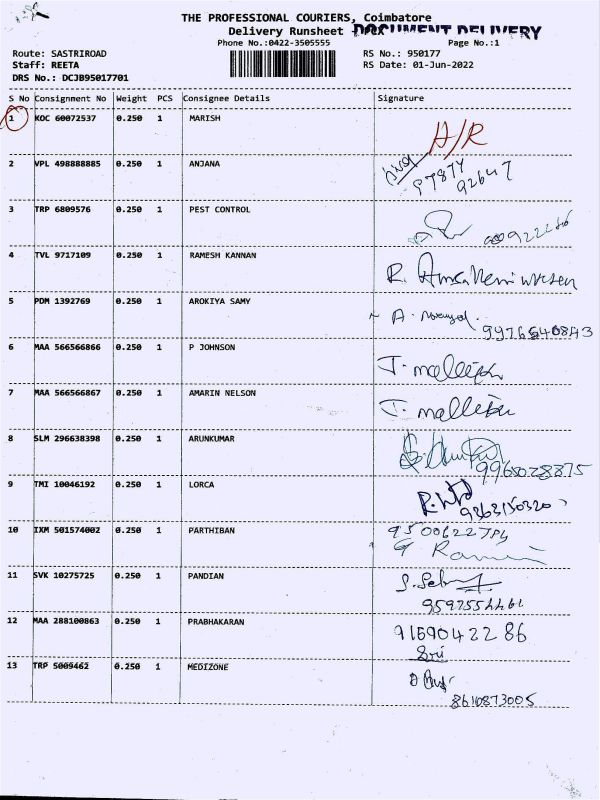 THE PROFESSIONAL COURIERS, Coimbatore
Delivery Runsheet - DOX DOCUMENT DELIVERY
Phone No.:0422-3505555 Page No.:1
Route: SASTRIROAD RS No.: 950177
Staff: REETA RS Date: 01-Jun-2022
DRS No.: DCJB95017701
S No Consignment No Weight PCS Consignee Details Signature
1 KOC 60072537 0.250 1 MARISH A/R
2 VPL 498888885 0.250 1 ANJANA 97877
92647
3 TRP 6809576 0.250 1 PEST CONTROL
4 TVL 9717109 0.250 1 RAMESH KANNAN R.
5 PDM 1392769 0.250 1 AROKIYA SAMY A.
9976540843
6 MAA 566566866 0.250 1 P JOHNSON J. mallika
7 MAA 566566867 0.250 1 AMARIN NELSON J. mallika
8 SLM 296638398 0.250 1 ARUNKUMAR
9965028875
9 TMI 10046192 0.250 1 LORCA
9363150320
10 IXM 501574002 0.250 1 PARTHIBAN
11 SVK 10275725 0.250 1 PANDIAN
12 MAA 288100863 0.250 1 PRABHAKARAN 9159042286
Sri
13 TRP 5009462 0.250 1 MEDIZONE
8610873005